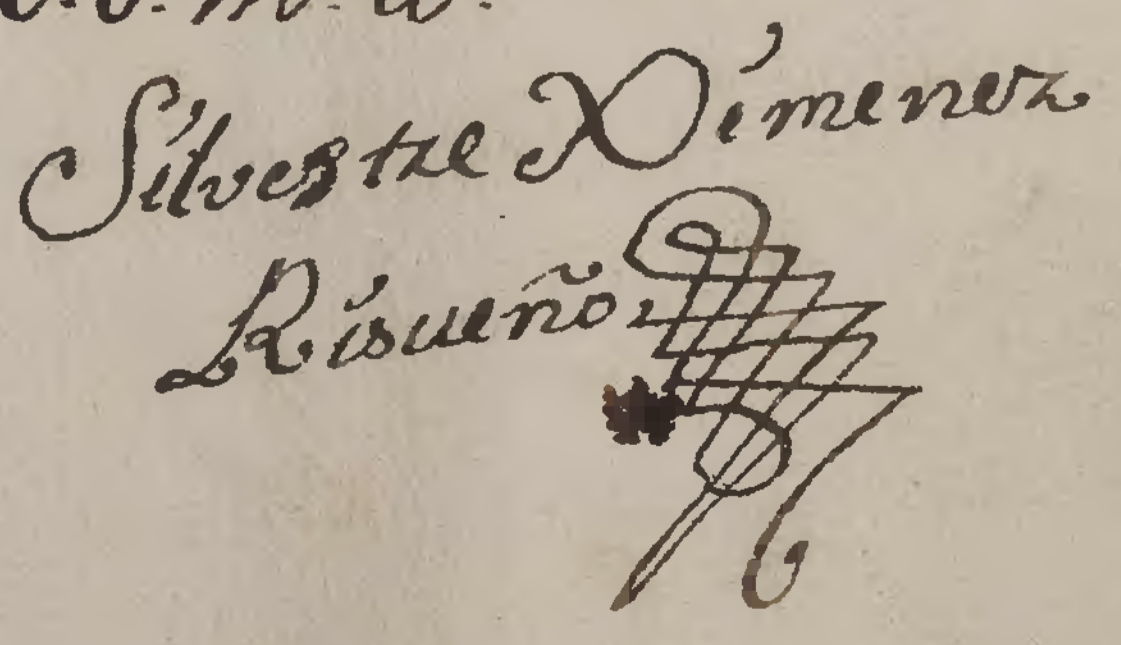 Silvestre Ximenez
Risueño.